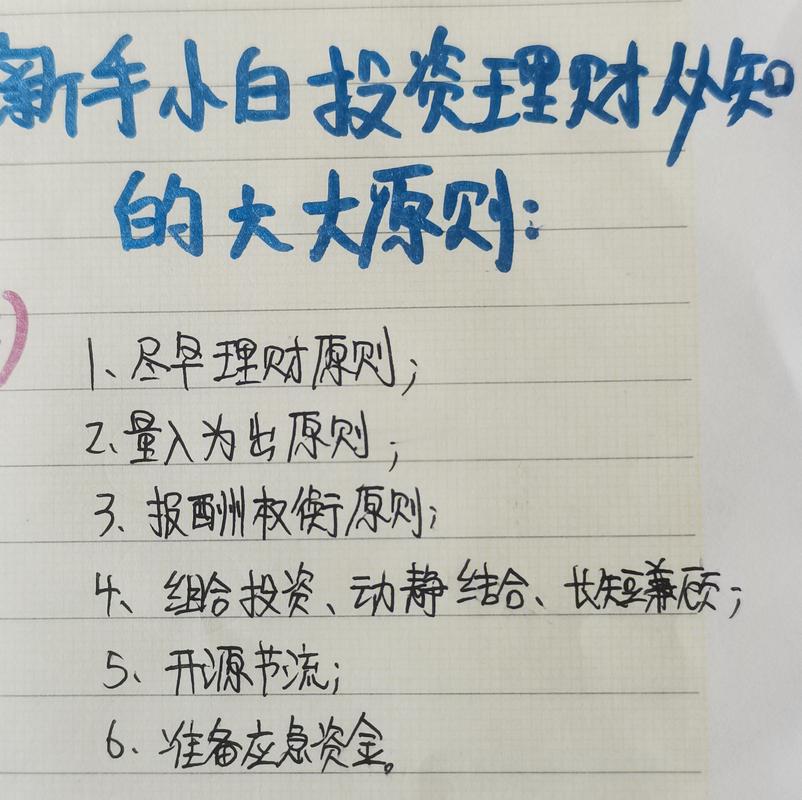 新手小白投资理财必知
的大大原则:
1、尽早理财原则;
2、量入为出原则;
3、报酬权衡原则;
4、组合投资、动静结合、长短兼顾;
5、开源节流;
6、准备应急资金。